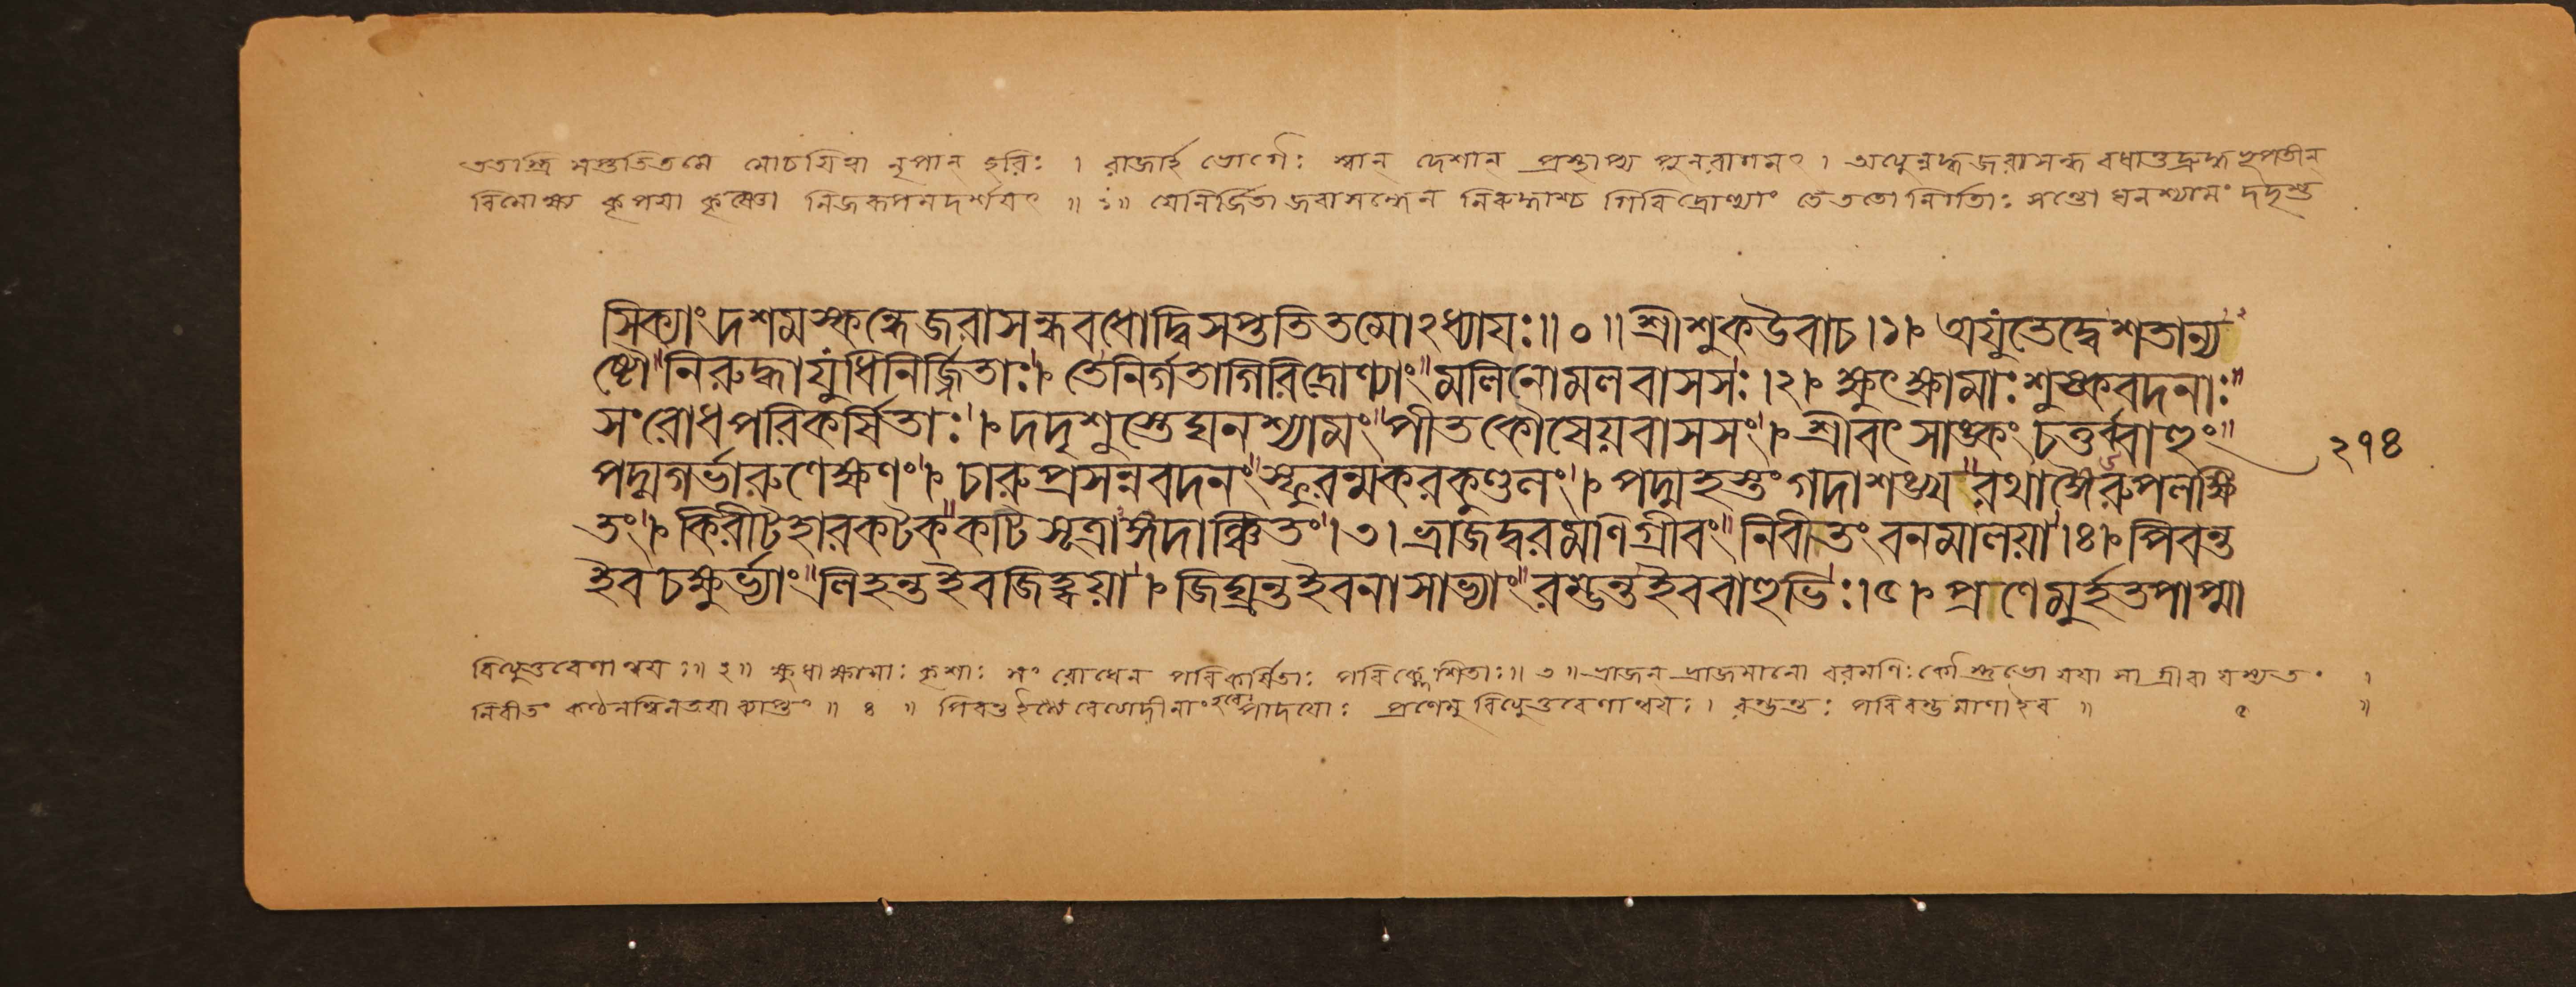 ততস্ত্রি সপ্ততিতমে মোচয়িত্বা নৃপান্ হরিঃ । রাজার্হ ভোগৈঃ স্বান্ দেশান্ প্রস্থাপ্য পুনরাগমৎ । জরাসন্ধ বধা
বিমোক্ষ্য কৃপয়া কৃষ্ণো নিজরূপমদর্শয়ৎ ॥ ১॥ যে নির্জিতা জরাসন্ধেন নিরুদ্ধাশ্চ গিরিদ্রোণ্যাং তে ততো নির্গতাঃ সন্তো ঘনশ্যামং দদৃশু
সিক্যাং দশমস্কন্ধে জরাসন্ধবধোদ্বিসপ্ততিতমোঽধ্যায়ঃ॥০॥ শ্রীশুকউবাচ।১। অযুতেদ্বেশতান্য
ষ্টৌ নিরুদ্ধাযুধিনির্জ্জিতাঃ। তেনির্গতাগিরিদ্রোণ্যাং মলিনোমলবাসসঃ।২। ক্ষুৎক্ষামাঃ শুষ্কবদনাঃ
সংরোধপরিকর্সিতাঃ। দদৃশুস্তেঘনশ্যামং পীতকৌসেয়বাসসং। শ্রীবৎসাঙ্কং চতুর্ব্বাহুং
পদ্মগর্ভারুণেক্ষণং। চারুপ্রসন্নবদনং স্ফুরন্মকরকুণ্ডলং। পদ্মহস্তংগদাশঙ্খ রথাঙ্গৈরুপলক্ষি
তং। কিরীটহারকটক কটিসূত্রাঙ্গদাঞ্চিতং।৩। ভ্রাজদ্বরমণিগ্রীবং নিবীতং বনমালয়া।৪। পিবন্ত
ইব চক্ষুর্ভ্যাং লিহন্তইবজিহ্বয়া। জিঘ্রন্তইবনাসাভ্যাং রম্ভন্তইববাহুভিঃ।৫। প্রণেমুর্হতপাপ্মা
২১৪
॥ ২॥ ক্ষুধা ক্ষামাঃ কৃশাঃ সংরোধেন পরিকর্সিতাঃ পরিক্লেশিতাঃ॥ ৩ ॥ ভ্রাজন্ ভ্রাজমানো বরমণিঃ কৌস্তুভো যয়া সা গ্রীবা যস্য তং ।
নিবীতং ॥ ৪ ॥ পাদয়োঃ প্রণেমু ॥ ৫ ॥